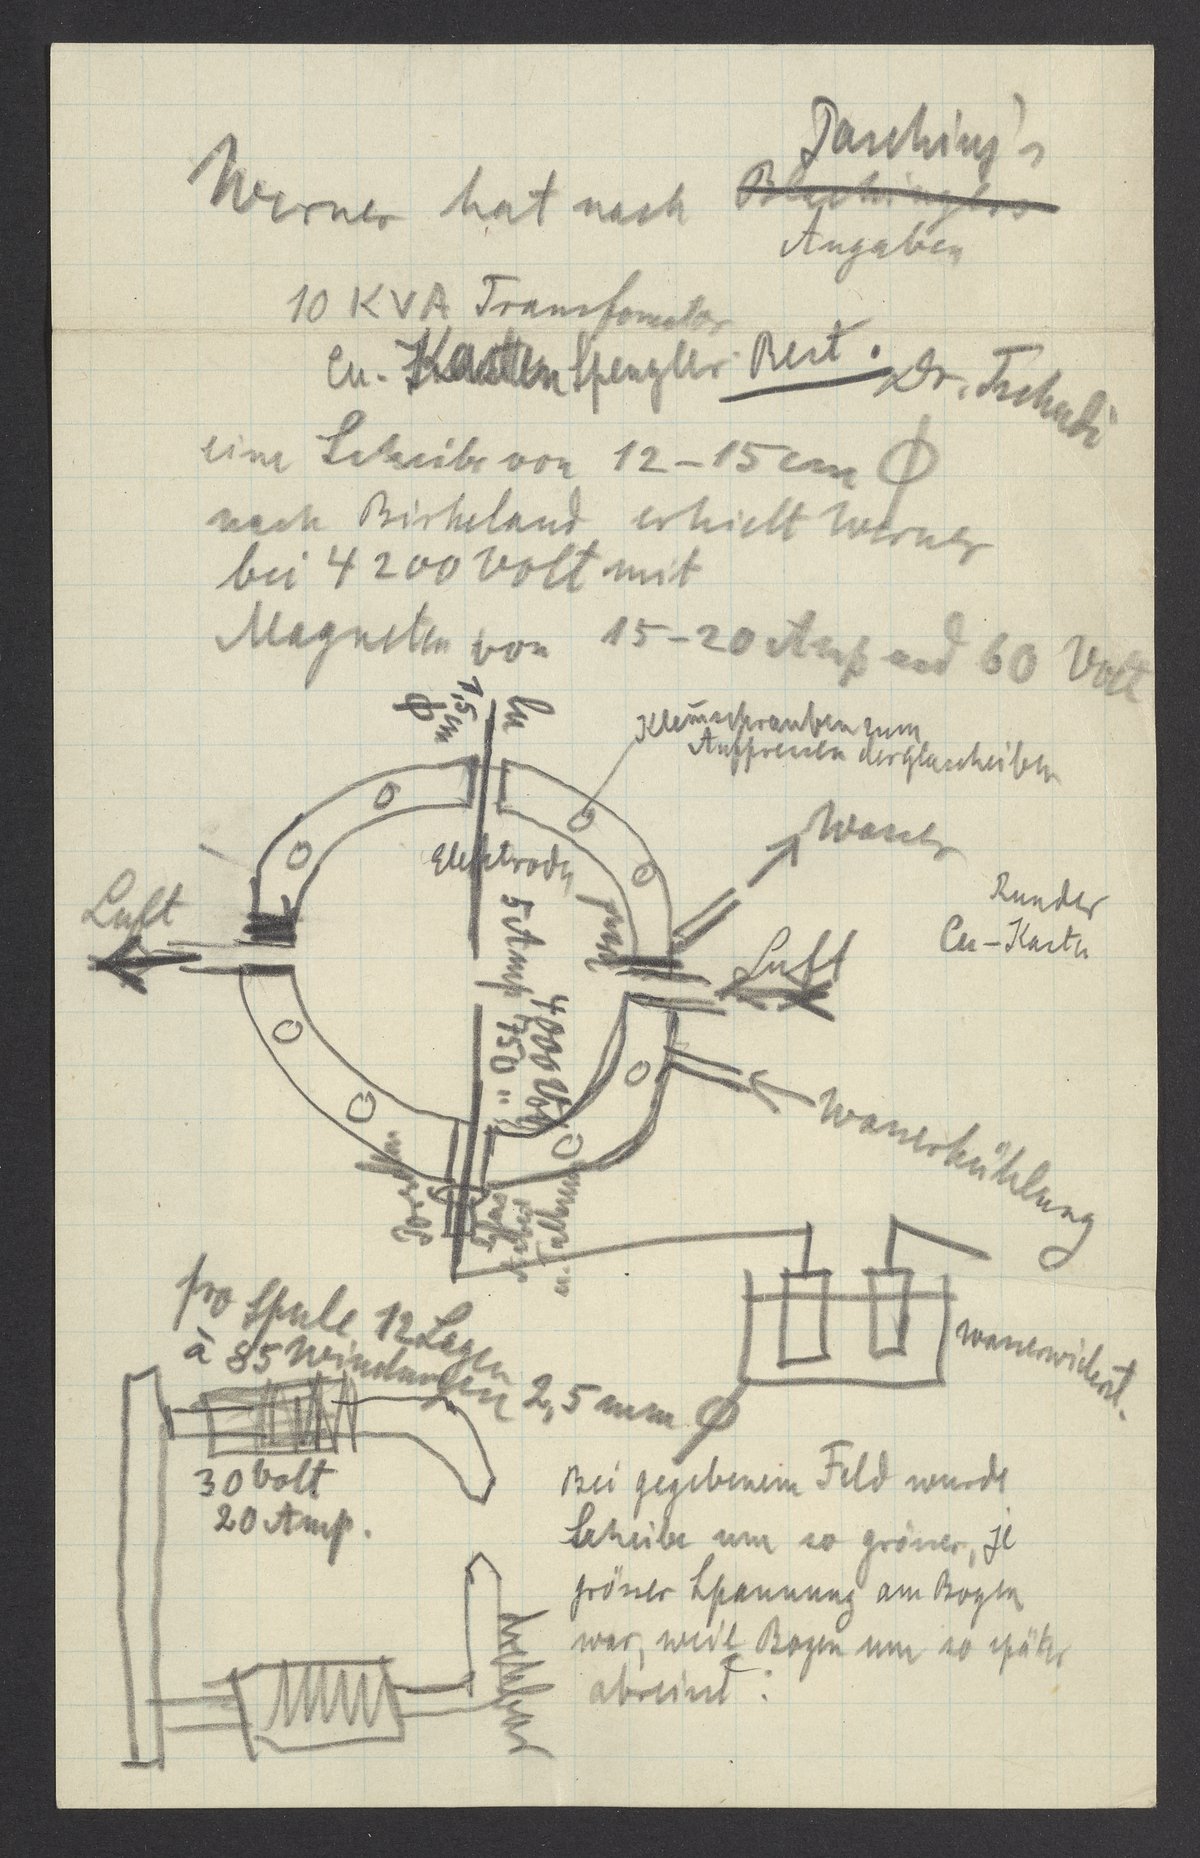 Werner hat nach
Angaben
10 KVA Transfomator
Cu. Kasten Spengler Best. Dr. Tschudi
eine Scheibe von 12–15 cm ϕ
nach Birkeland erhielt Werner
bei 4200 Volt mit
Magneten von 15–20 Amp und 60 Volt
1,5 cm ϕ
Cu
Klemschrauben zum
Anpressen der Glasscheiben
Wasser
Elektroden
Luft
Runder
Cu-Kasten
Luft
5 Amp 4000 Volt
750 "
Wasserkühlung
Porzellan
Glas
pro Spule 12 Lagen
à 85 Windungen 2,5 mm ϕ
Wasserwiderst.
30 Volt
20 Amp.
Bei gegebenem Feld wurde
Scheibe um so grösser, je
grösser Spannung am Bogen
war, weil Bogen um so später
abreisst: